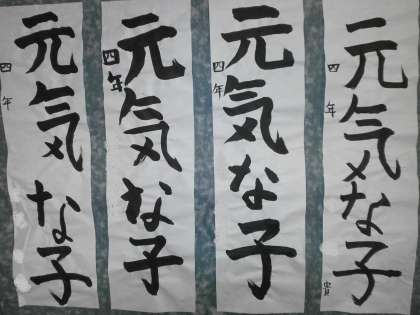 元気な子
四年
元気な子
四年
元気な子
四年
元気な子
四年